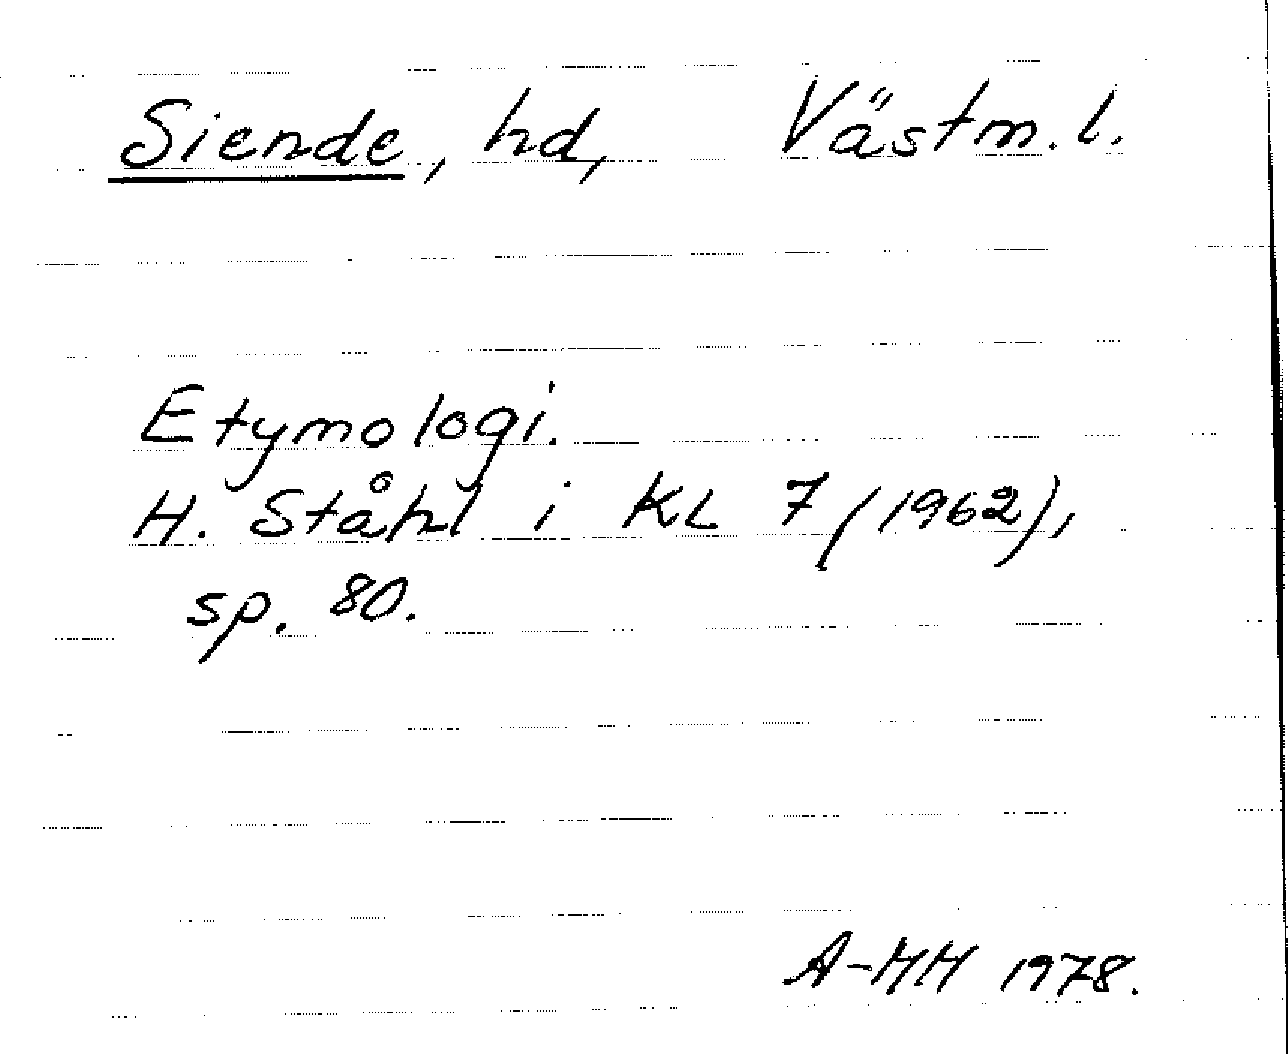 Siende, hd, Västm. l.
Etymologi.
H. Ståhl i KL 7 (1962),
sp. 80.
A-HH 1978.